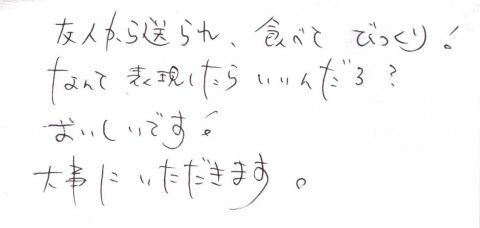 友人から送られ、食べて びっくり!
なんて 表現したら いいんだろ?
おいしいです!
大事に いただきます。